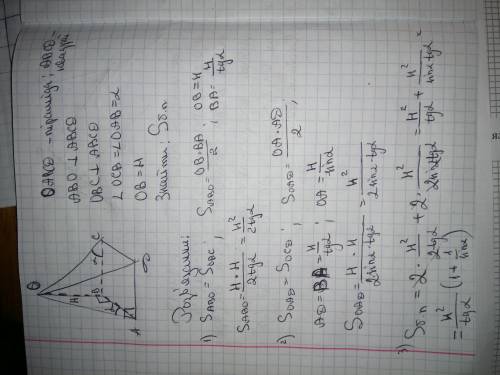 OABCD - піраміда; ABCD - квадрат
ABO ⊥ ABCD
OBC ⊥ ABCD
∠OCB = ∠OAB = α
OB = H
Знайти: Sб.п
O
H
B
C
A
D
Розв'язання:
1) S_ABO = S_OBC; S_ABO = OB·BA/2; OB = H
BA = H/tgα
S_ABO = H·H/2tgα = H²/2tgα
2) S_OAD = S_OCD; S_OAD = OA·AD/2;
AD = BA = H/tgα; OA = H/sinα
S_OAD = H·H/2sinα·tgα = H²/2sinα·tgα
3) Sб.п = 2·H²/2tgα + 2·H²/2sinα tgα = H²/tgα + H²/sinα tgα =
= H²/tgα (1 + 1/sinα)